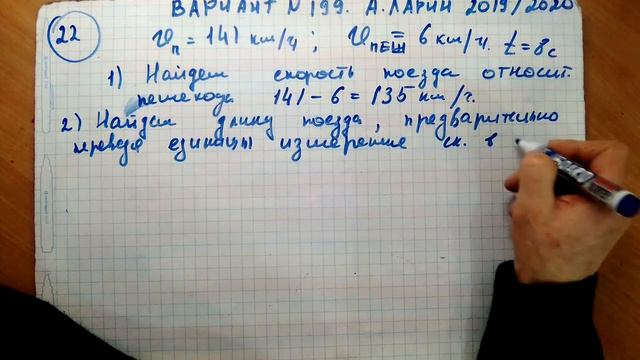 ВАРИАНТ N 199. А. ЛАРИН 2019/2020
22 Vп = 141 км/ч; VПЕШ = 6 км/ч. t = 8с
1) Найдем скорость поезда относит.
пешехода 141 - 6 = 135 км/ч.
2) Найдем длину поезда, предварительно
переведя единицы измерение ск. в